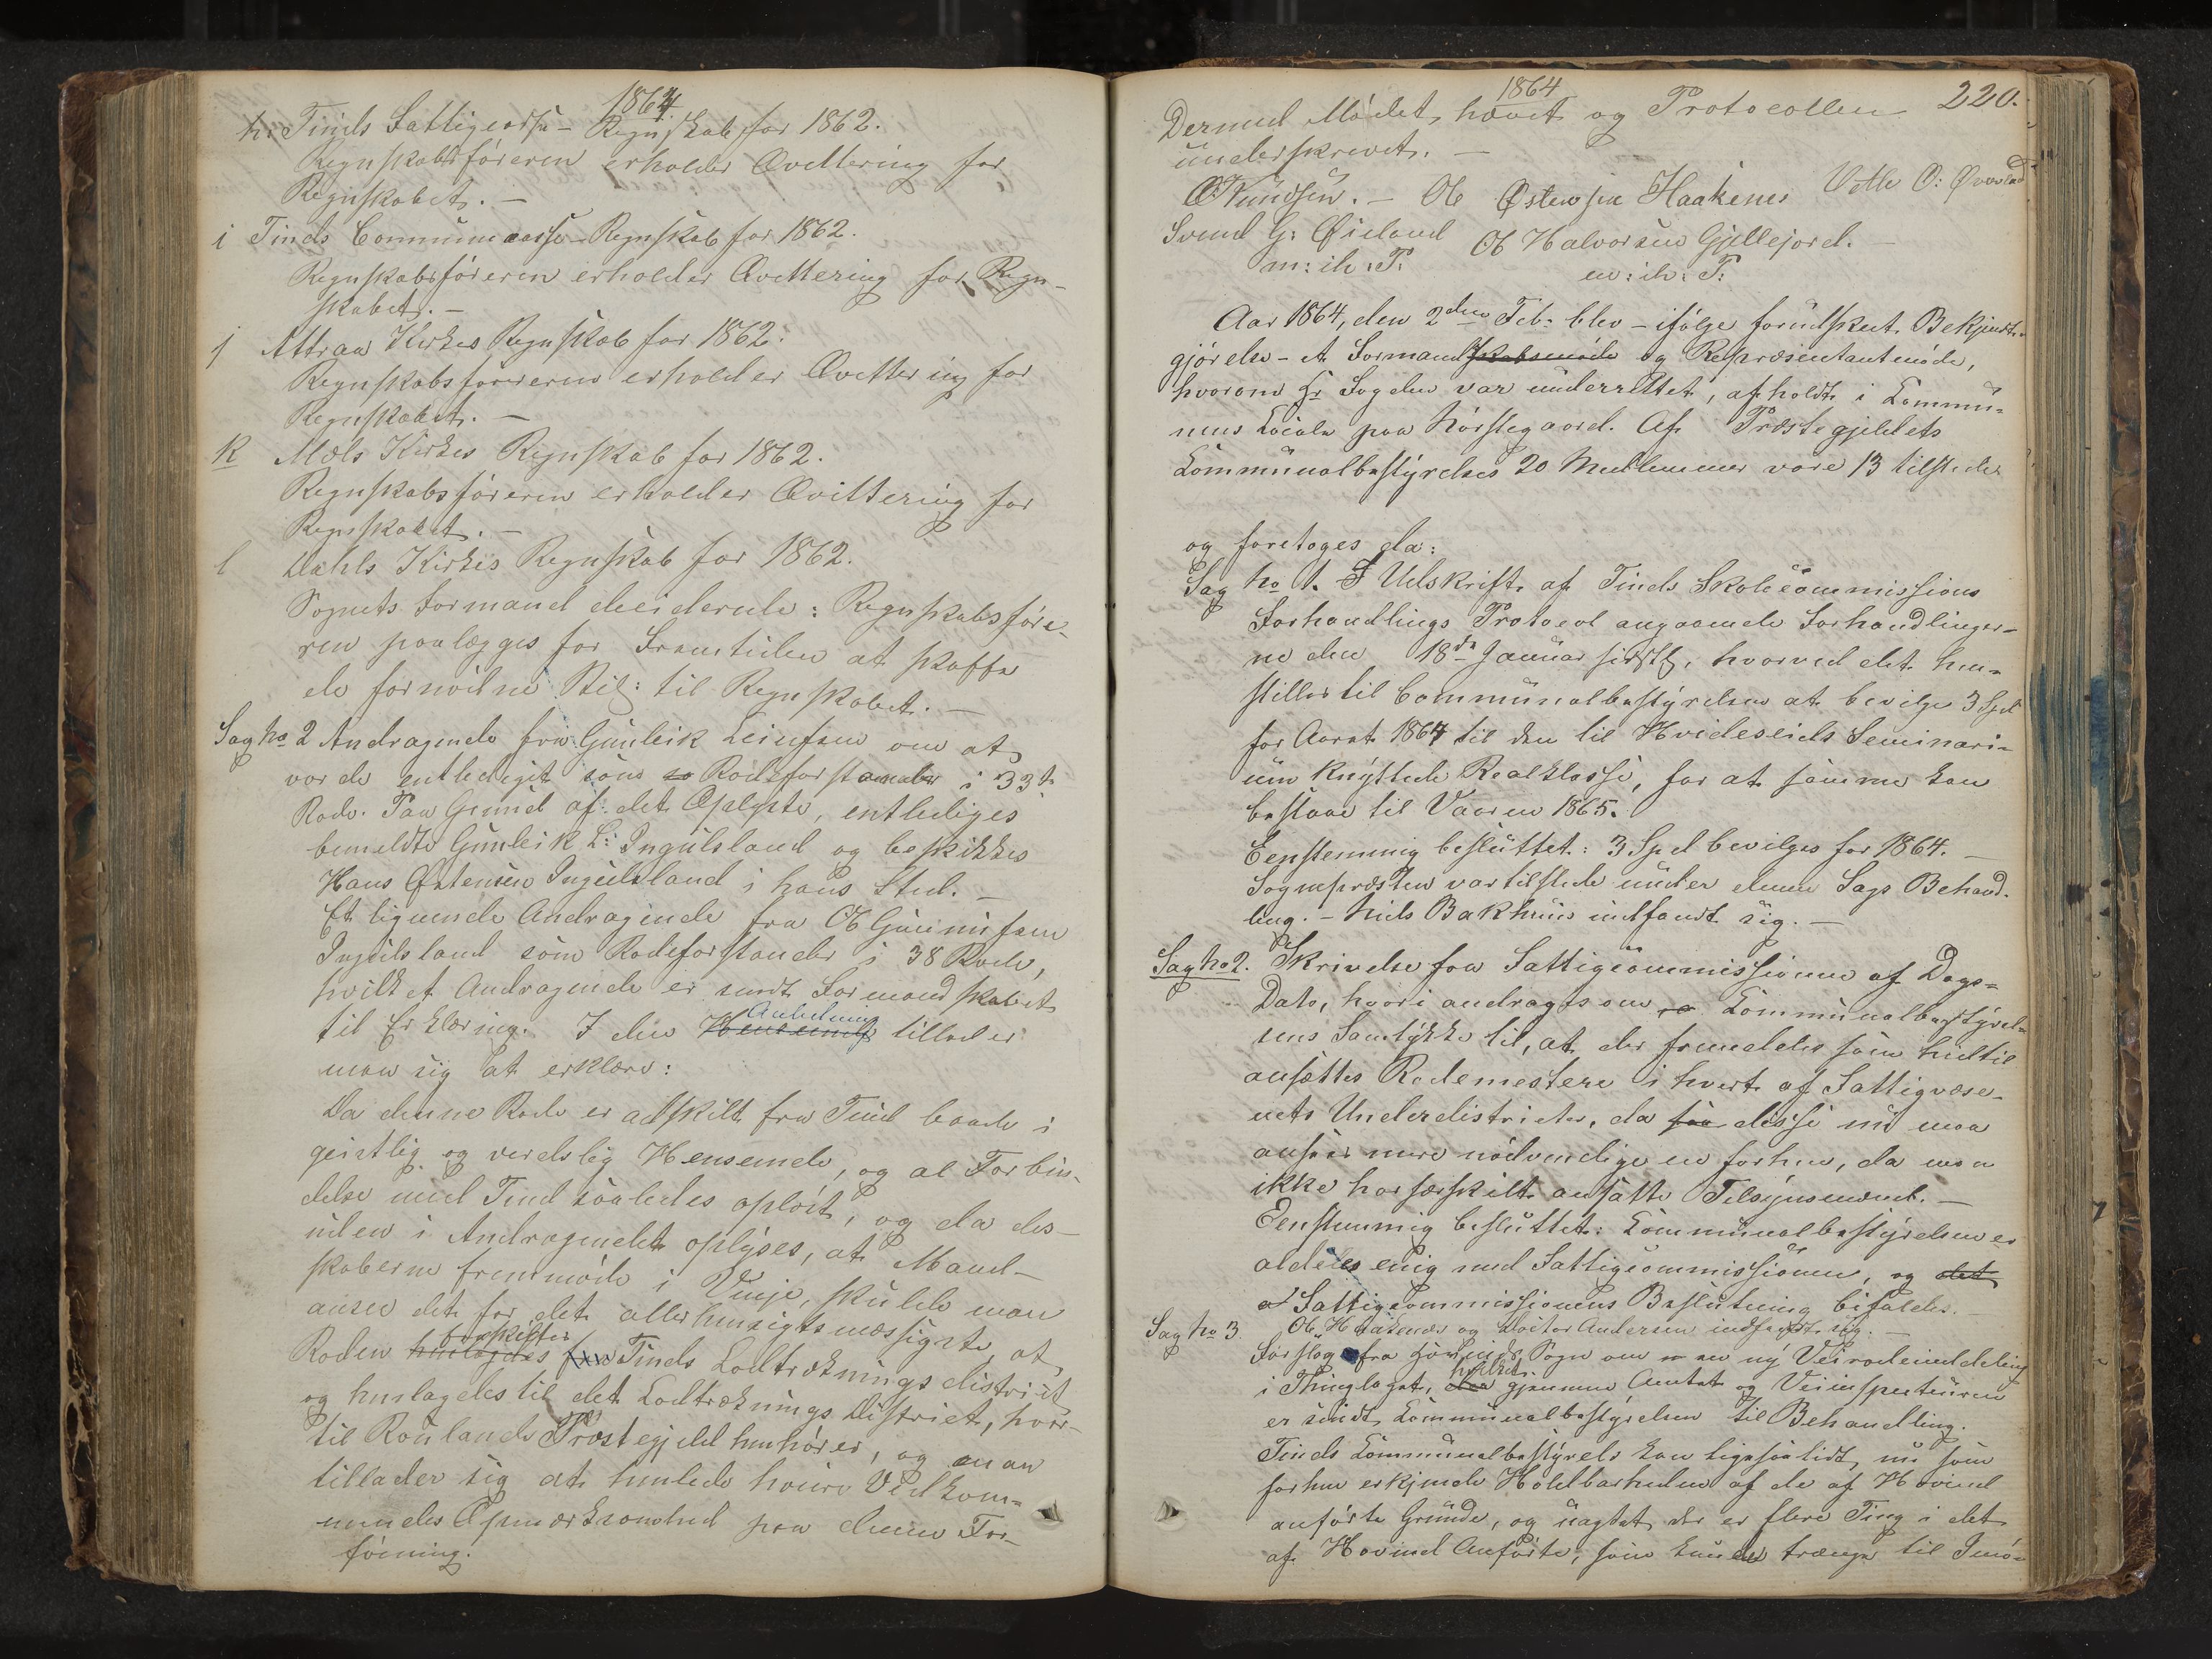 1864
h. Tinds Fattigcasse-Regnskab for 1862.
Regnskabsföreren erholder Qvittering for
Regnskabet. —
i Tinds Communecasse-Regnskab for 1862.
Regnskabsföreren erholder Qvittering for Regn-
skabet. —
j Attraa Kirkes Regnskab for 1862.
Regnskabsföreren erholder Qvittering for
Regnskabet. —
k Mæls Kirkes Regnskab for 1862.
Regnskabsföreren erholder Qvittering for
Regnskabet. —
l Dahls Kirkes Regnskab for 1862.
Sognets Formand deciderede: Regnskabsföre-
ren paalægges for Fremtiden at skaffe
de fornödne Bil: til Regnskabet. —
Sag No 2 Andragende fra Gunleik Leifsen om at
vorde entlediget som Rodeforstander i 33te
Rode. Paa Grund af det Oplyste, entlediges
bemeldte Gunleik L: Ingulsland og beskikkes
Hans Østensen Ingulsland i hans Sted. —
Et lignende Andragende fra Ol Gunnufsen
Ingulsland som Rodeforstander i 38 Rode,
hvilket Andragende er sendt Formandskabet
til Erklæring. I den Henseende Anledning tillader
man sig at erklære:
Da denne Rode er adskilt fra Tind baade i
geistlig og verdslig Henseende, og al Forbin-
delse med Tind saaledes oplöst, og da des-
uden i Andragendet oplyses, at Mand-
skaberne fremmöde i Vinje, skulde man
anse det for det allerhensigtsmæssigste, at
Roden henlagdes fraskiltes fra Tinds Lodtrækningsdistrict
og henlagdes til det Lodtræknings District, hvor-
til Raulands Præstegjeld henhörer, og man
tillader sig at henlede höiere Vedkom-
mendes Opmærksomhed paa denne For-
föining.
1864
220.
Dermed Mödet hævet og Protocollen
underskrevet. —
O Knudsen. — Ol Østensen Haakenes Vetle O: Øverland
Svend G: Øieland Ol Halvorsen Gjellejord. —
m: ih: P: m: ih: P:
Aar 1864, den 2den Feb: blev – ifölge forudskeet Bekjendt-
gjörelse – et Formandskabsmöde og Repræsentantmöde,
hvorom Hr Fogden var underrettet, afholdt i Commu-
nens Locale paa Hörstegaard. Af Præstegjeldets
Communalbestyrelses 20 Medlemmer vare 13 tilstede
og foretoges da:
Sag No 1. Udskrift af Tinds Skolecommissions
Forhandlings Protocol angaaende Forhandlinger-
ne den 18de Januar sidstl. hvorved det hen-
stilles til Communalbestyrelsen at bevilge 3 Spd
for Aaret 1864 til den til Hvideseids Seminari-
um knyttede Realklasse, for at samme kan
bestaae til Vaaren 1865.
Eenstemmig besluttet: 3 Spd bevilges for 1864. —
Sognepræsten var tilstede under denne Sags Behand-
ling. – Niels Bakhuus indfandt sig. —
Sag No 2. Skrivelse fra Fattigcommissionen af Dags-
Dato, hvori andrages om Communalbestyrel-
sens Samtykke til, at der fremdeles som hidtil
ansættes Rodemestere i hvert af Fattigvæse-
nets Underdistricter, da saa disse nu maa
ansees mere nödvendige en forhen, da man
ikke har særskilt ansatte Tilsynsmænd. —
Eenstemmig besluttet: Communalbestyrelsen er
aldeles enig med Fattigcommissionen, og det
at Fattigcommissionens Beslutning bifaldes. —
Ol Haakenæs og Doctor Andersen indfandt sig. —
Sag No 3 Forslag fra Hovinds Sogn om en ny Veirodeinddeling
i Thinglaget, der hvilket gjennem Amtet og Veiinspecteuren
er sendt Communalbestyrelsen til Behandling.
Tinds Communalbestyrels kan ligesaalidt nu som
forhen erkjende Holdbarheden af de af Hovind
anförte Grunde, og uagtet der er flere Ting i det
af Hovind Anförte, som kunde trænge til Imö-